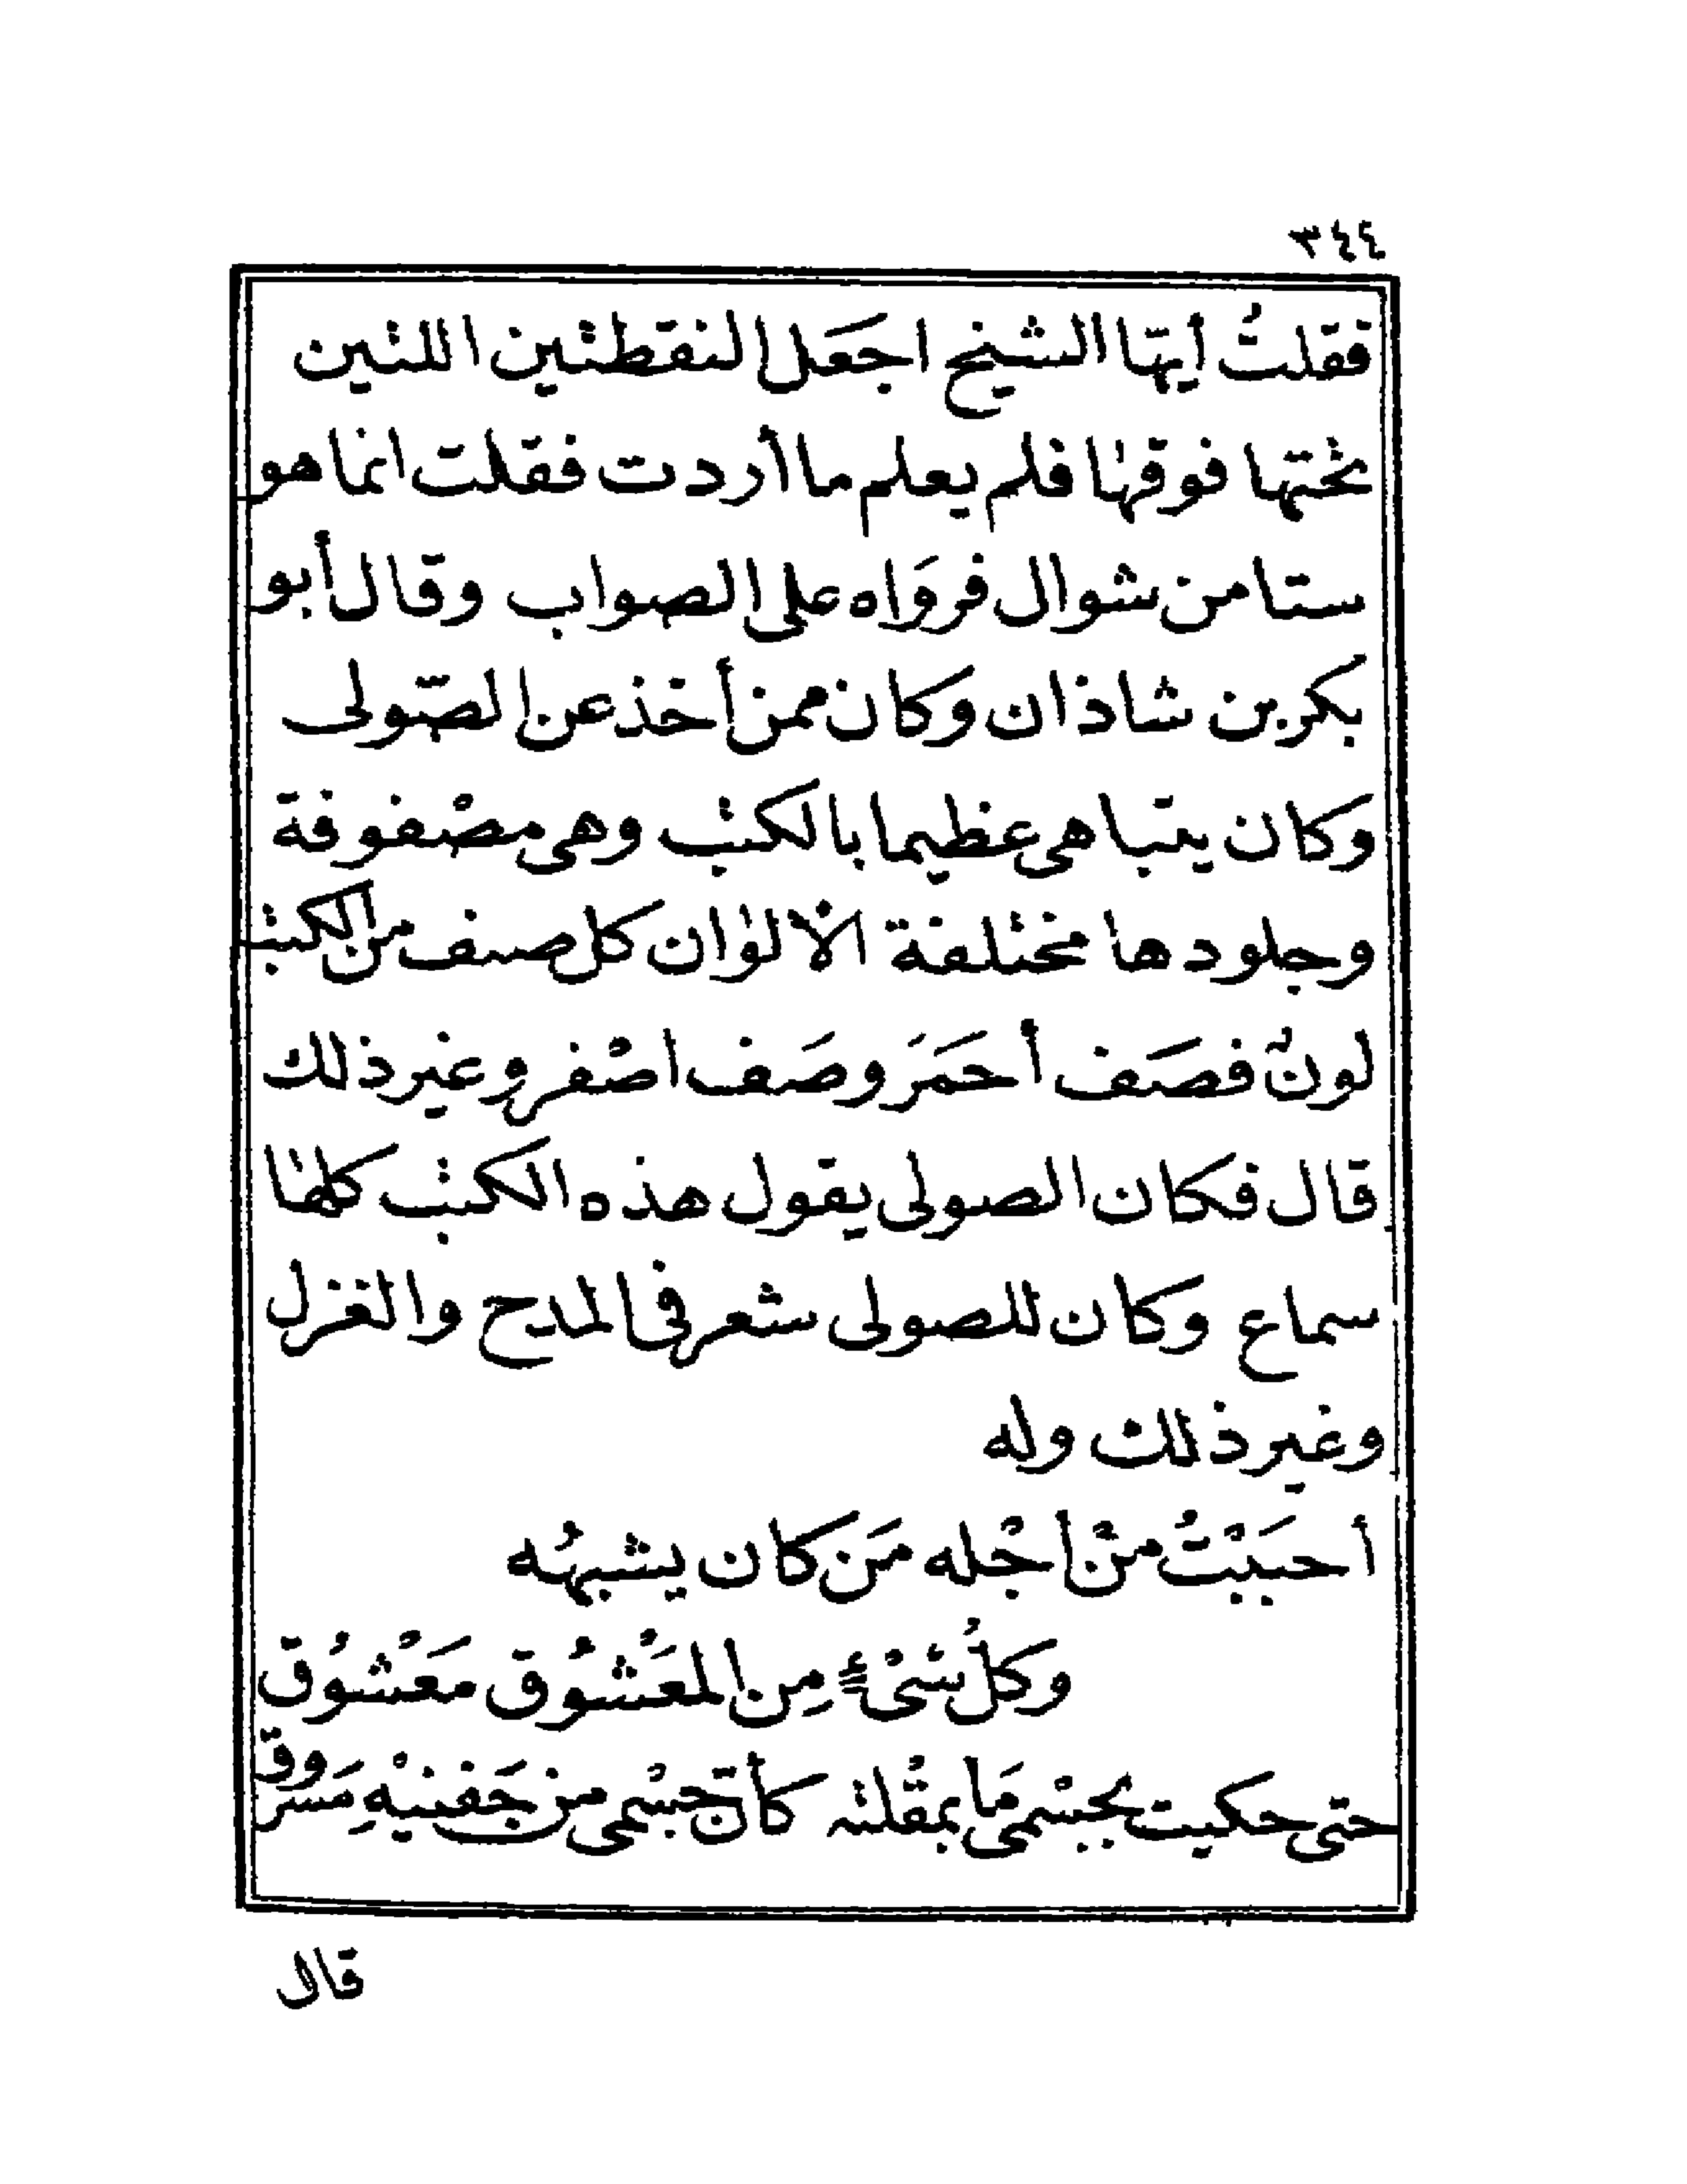 ٣٤٤
فقلتُ أيّها الشيخ اجعَل النقطتين اللتين
تحتها فوقها فلم يعلم ما أردت فقلت انما هو
ستا من شوال فروَاه على الصواب وقال أبو
بكر بن شاذان وكان ممن أخذ عن الصّولى
وكان يتباهى عظيما بالكتب وهى مصْفوفة
وجلودها مختلفة الالوان كل صنف من الكتب
لونٌ فصَف أحمَرَ وصَف اصْفر وغير ذلك
قال فكان الصولى يقول هذه الكتب كلها
سماع وكان للصولى شعر فى المدح والغزل
وغير ذلك وله
أحبَبْتُ منْ اجْله مَن كان يشبهُه
وكلُ شىْءٍ مِن المعَْشُوق مَعْشُوق
حتى حكيت بجسْمى مَا بمقْلته كأنّ جسْمى من جَفنيْهِ مَسروق
قال